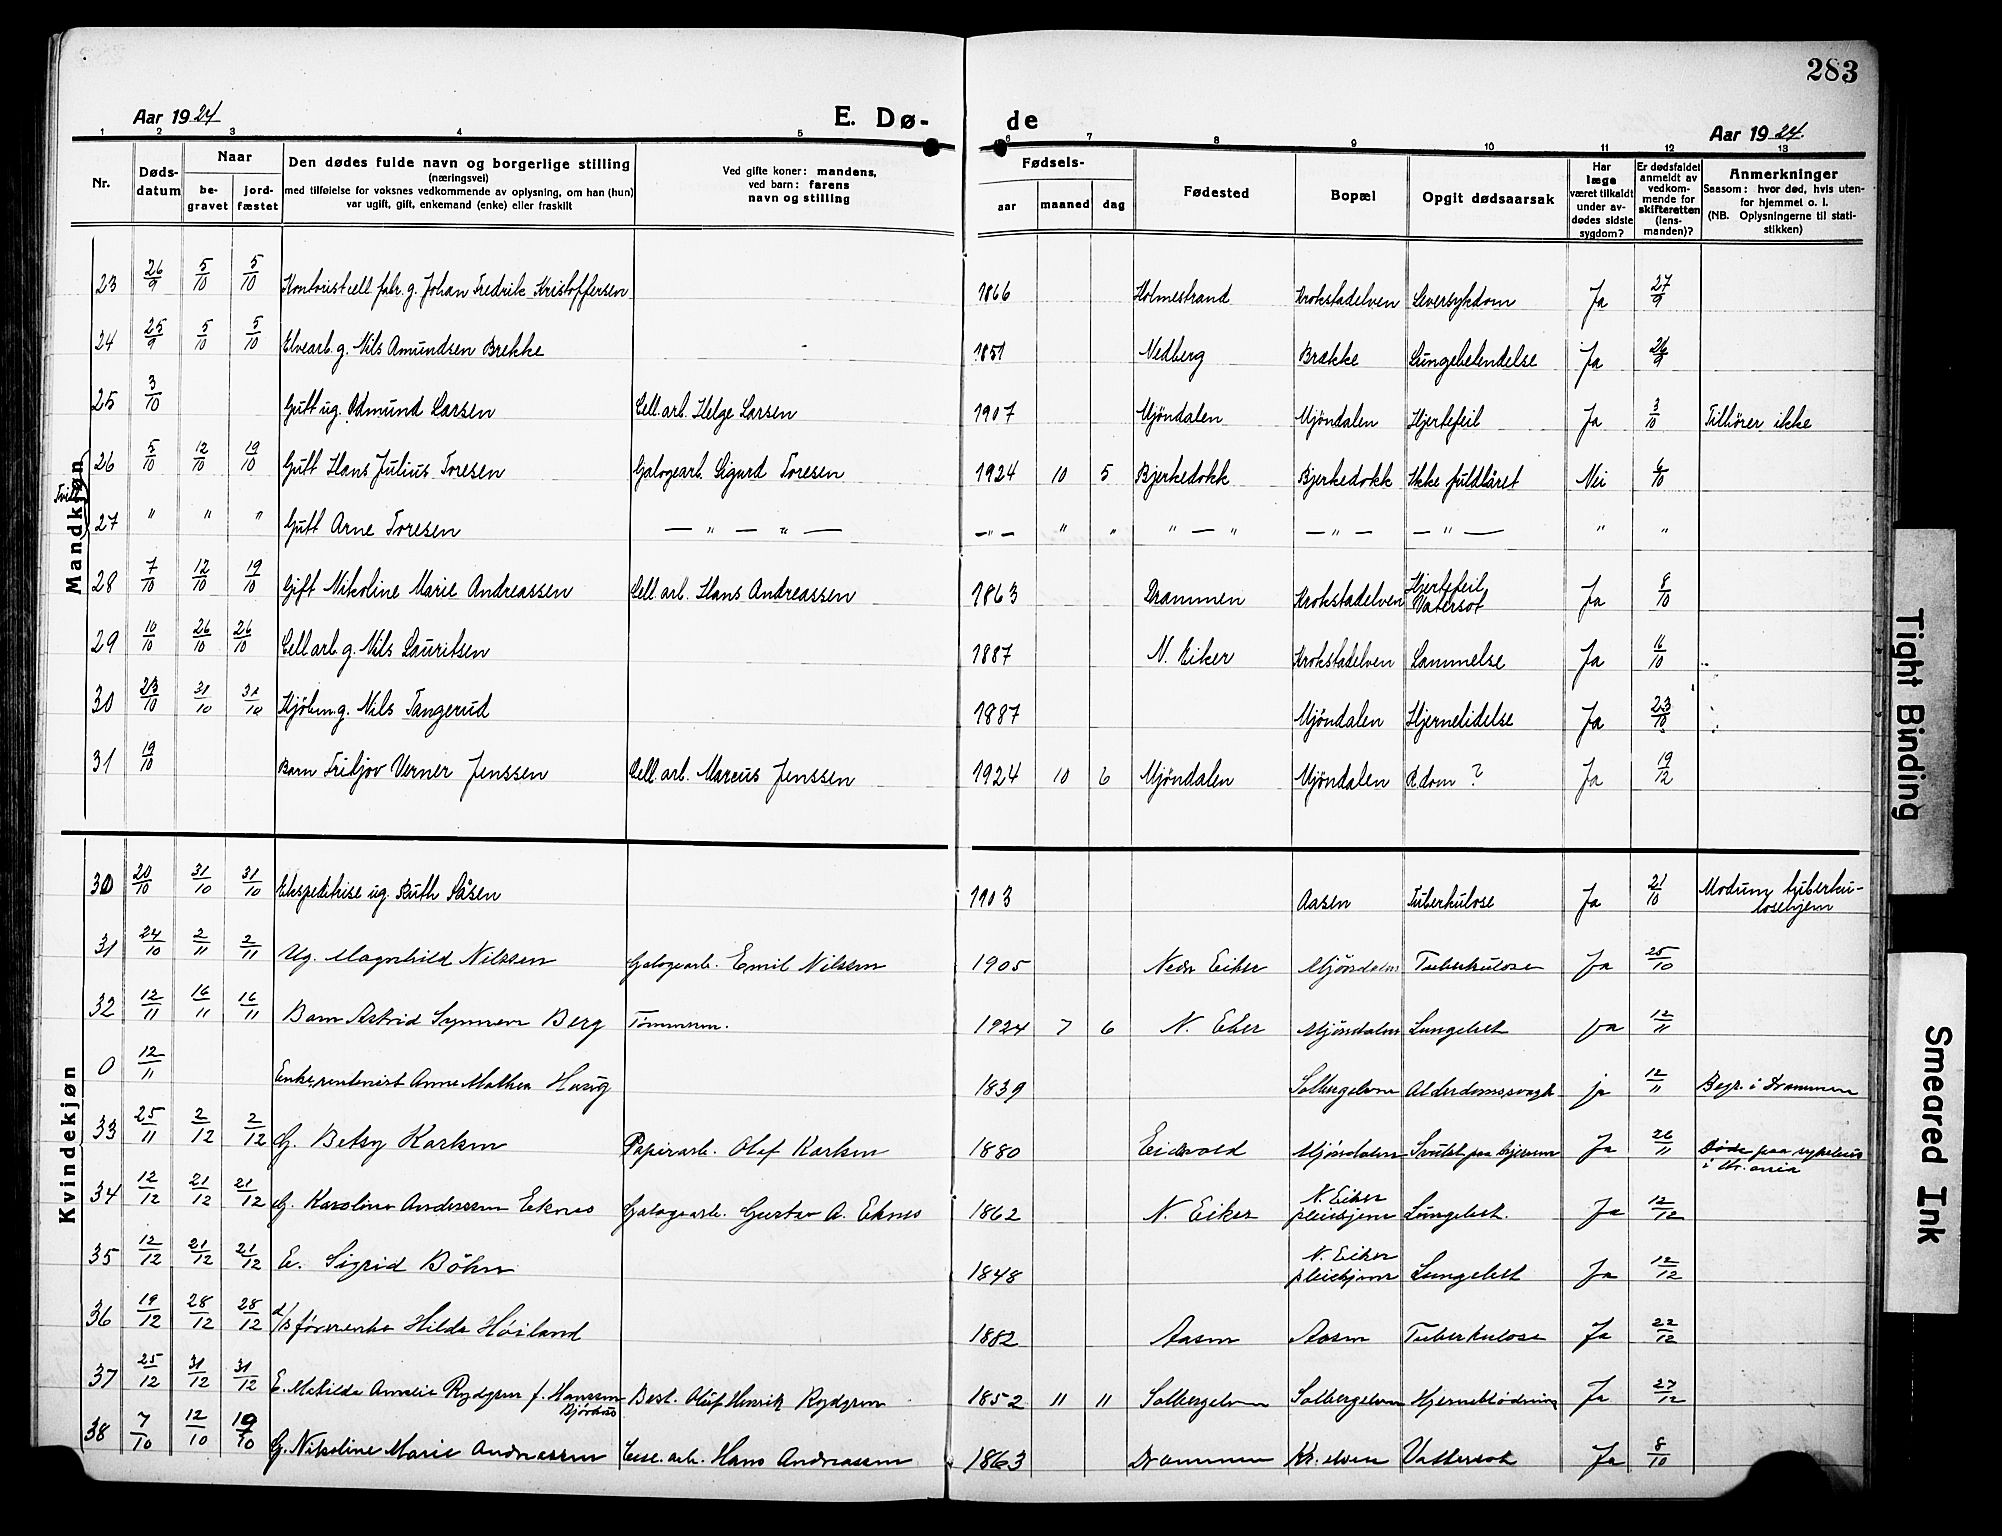 283
Aar 1924 E. Dø- de Aar 1924.
1 2 3 4 5 6 7 8 9 10 11 12 13
Nr. Døds-datum Naar be-gravet jord-fæstet Den dødes fulde navn og borgerlige stilling (næringsvei) med tilføielse for voksnes vedkommende av oplysning, om han (hun) var ugift, gift, enkemand (enke) eller fraskilt Ved gifte koner: mandens, ved barn: farens navn og stilling Fødsels- aar maaned dag Fødested Bopæl Opgit dødsaarsak Har læge været tilkaldt under av-dødes sidste sygdom? Er dødsfaldet anmeldt av vedkom-mende for skifteretten (lens-manden)? Anmerkninger Saasom: hvor død, hvis uten-for hjemmet o. l. (NB. Oplysningerne til stati-stikken)
Mandkjøn
23 26/9 5/10 5/10 Kontorist cell fabr. g. Johan Fredrik Kristoffersen 1866 Holmestrand Krokstadelven Leversykdom Ja 27/9
24 25/9 5/10 5/10 Elvearb. g. Nils Amundsen Brekke 1851 Nedberg Brække Lungebetendelse Ja 26/9
25 3/10 Gutt ug. Odmund Larsen Cell. arb. Helge Larsen 1907 Mjöndalen Mjöndalen Hjertefeil Ja 3/10 Tilhörer ikke
26 5/10 12/10 19/10 Gutt Hans Julius Toresen Galogearb. Sigurd Toresen 1924 10 5 Bjerkedokk Bjerkedokk Ikke fuldbåret Nei 6/10
27 " " " Gutt Arne Toresen — " — " — — " — " " " — " — " — — " — " "
28 7/10 12/10 19/10 Gift Nikoline Marie Andreassen Cell arb. Hans Andreassen 1863 Drammen Krokstadelven Hjertefeil Vatersot Ja 8/10
29 10/10 26/10 26/10 Cell arb g. Nils Lauritsen 1887 N. Eiker Krokstadelven Lammelse Ja 16/10
30 23/10 31/10 31/10 Kjöbm. g. Nils Tangerud 1887 Mjöndalen Hjernelidelse Ja 23/10
31 19/10 Barn Fritjov Verner Jenssen Cell arb. Marcus Jenssen 1924 10 6 Mjöndalen Mjöndalen ? Ja 19/12
Kvindekjøn
30 20/10 31/10 31/10 Ekspeditrise ug. Ruth Åsen 1903 Aasen Tuberkulose Ja 21/10 Modum tuberku-losehjem
31 24/10 2/11 2/11 Ug. Magnhild Nilssen Galogearb. Emil Nilssen 1905 Nedr Eiker Mjöndalen Tuberkulose Ja 25/10
32 12/11 16/11 16/11 Barn Astrid Synnöve Berg Tömmerm. 1924 7 6 N. Eker Mjöndalen Lungebet Ja 12/11
0 12/11 Enke, rentenist Anne Mathea Haug 1839 Solbergelven Alderdomssvagh. ja 12/11 Begr. i Drammen
33 25/11 2/12 2/12 G. Betsy Karlsen Papirarb. Olaf Karlsen 1880 Eidsvold Mjöndalen Svulst paa hjernen Ja 26/11 Döde paa sykehus i Kr.ania
34 12/12 21/12 21/12 G. Karoline Anderssen Eknes Galogearb. Gustav A. Eknes 1862 N. Eiker N. Eiker pleiehjem Lungebet. Ja 12/12
35 12/12 21/12 21/12 E. Sigrid Böhn 1848 N. Eiker pleiehjem Lungebet Ja 12/12
36 19/12 28/12 28/12 d/s förerenke Hilda Höiland 1882 Aasen Aasen Tuberkulose Ja 22/12
37 25/12 31/12 31/12 E. Matilde Amalie Rydgren f. Hanssen Björkås Best. Oluf Henrik Rydgren 1852 11 11 Solbergelven Solbergelven Hjerneblödning Ja 27/12
38 7/10 12/10 19/10 G. Nikoline Marie Andreassen Cell. arb. Hans Andreassen 1863 Drammen Kr. elven Vattersot Ja 8/10
Tight Binding
Smeared Ink